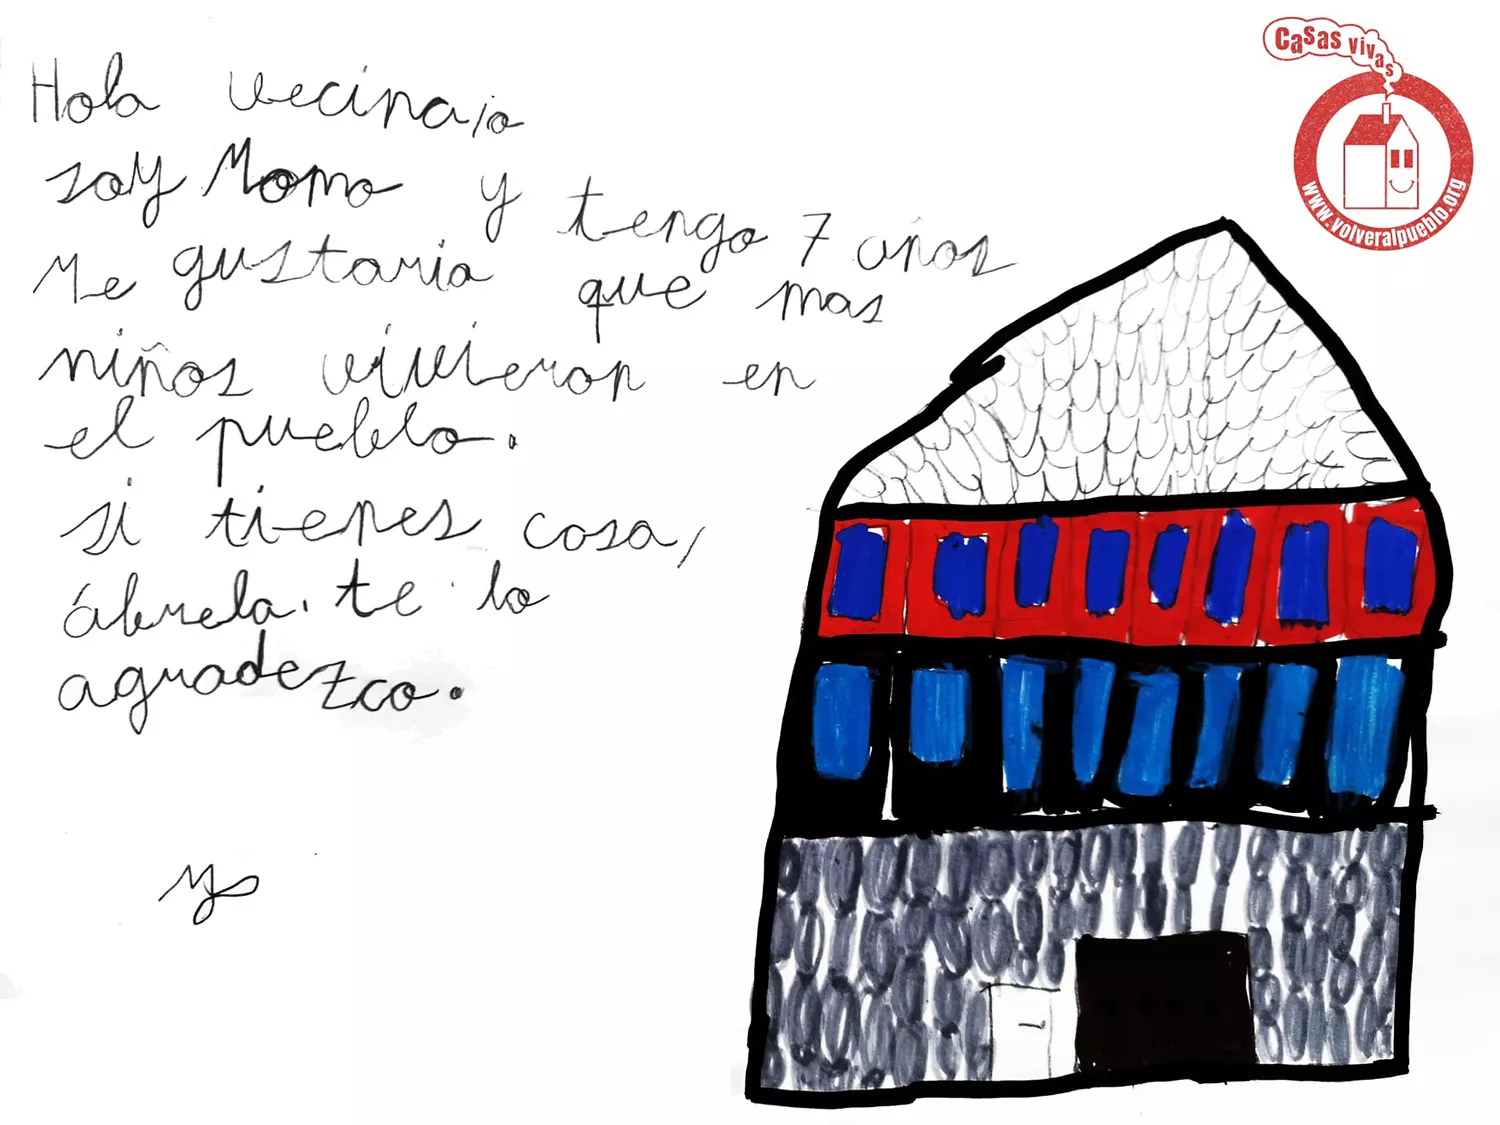 Hola vecina/o
soy Momo y tengo 7 años
Me gustaria que mas
niños vivieron en
el pueblo.
si tienes cosa,
ábrela. te lo
agradezco.
Casas vivas
www.volveralpueblo.org